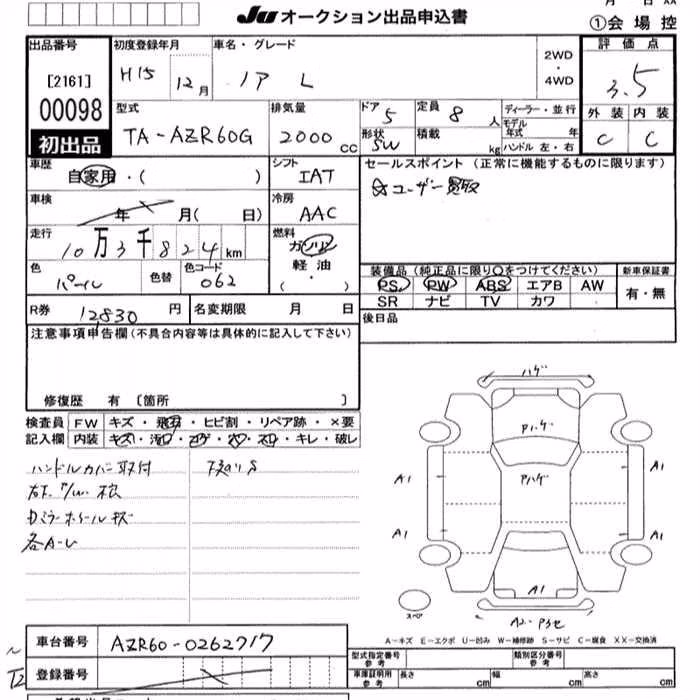 月 日 XX
JU オークション出品申込書
①会場控
出品番号
[2161]
00098
初出品
初度登録年月
H15 12月
車名・グレード
ノア L
2WD
・
4WD
評価点
3.5
外装 内装
C C
型式
TA-AZR60G
排気量
2000 cc
ドア 5
形状 SW
定員 8 人
積載 kg
ディーラー・並行
モデル年式 年
ハンドル 左・右
車歴
自家用・( )
シフト
IAT
車検
年 月( 日)
冷房
AAC
走行
10万3千824km
燃料
ガソリン
軽油
・
( )
色
パール
色替
色コード
062
R券
12830 円
名変期限 月 日
セールスポイント(正常に機能するものに限ります)
☆ユーザー買取
装備品(純正品に限り○をつけてください)
新車保証書
PS PW ABS エアB AW
有・無
SR ナビ TV カワ
後日品
注意事項申告欄(不具合内容等は具体的に記入して下さい)
修復歴 有 〔箇所 〕
検査員記入欄
FW キズ・飛石・ヒビ割・リペア跡・×要
内装 キズ・汚・コゲ・穴・スレ・キレ・破レ
ハンドルカバー取付
各A-U
ハゲ
Pハゲ
Pハゲ
A1
A1
A1
A1
A1
スペア
A2・P3セ
A-キズ E-エクボ U-凹み W-補修跡 S-サビ C-腐食 XX-交換済
車台番号
AZR60-0262717
登録番号
型式指定番号
参考
類別区分番号
参考
車庫証明用
参考
長さ cm
幅 cm
高さ cm